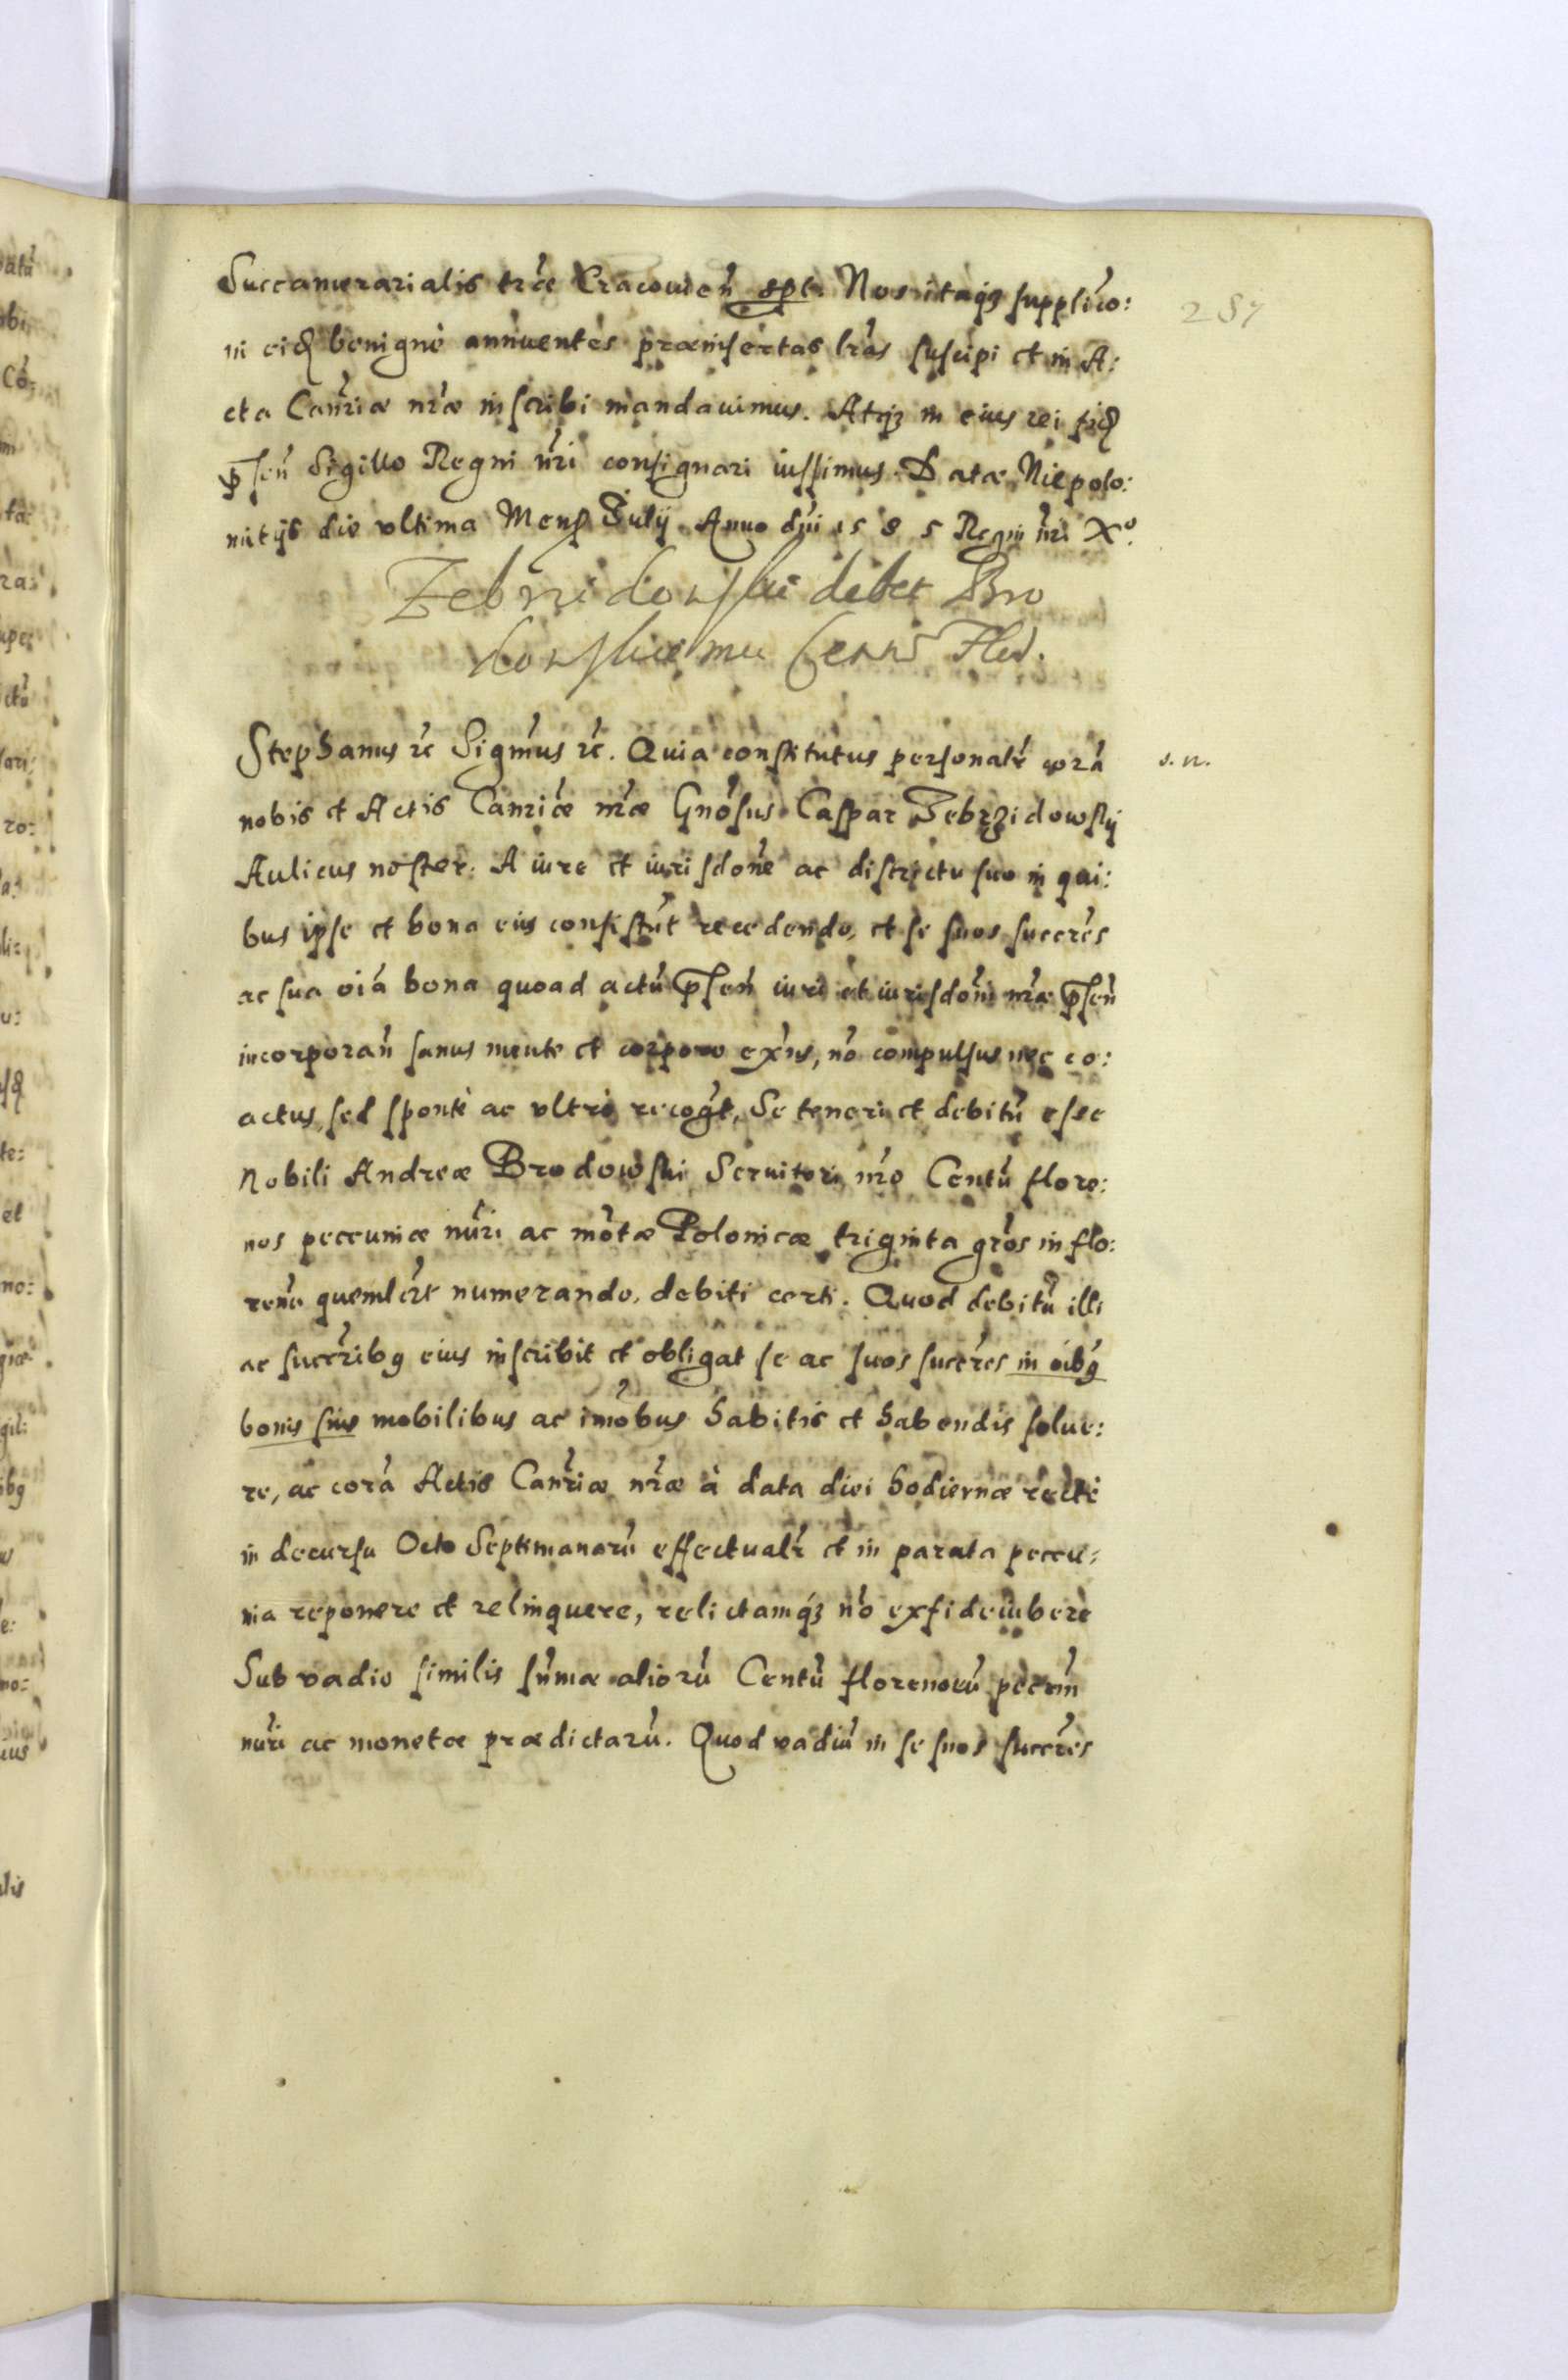 287
Succamerarialis trae Cracouien spt. Nos itaqz supplico:
ni eid benignè annuentes praeinsertas lras suscipi et in A:
cta Canriae nrae inscribi mandauimus. Atqz in eius rei fid
psen Sigillo Regni nri consignari iussimus. Datae Niepolo:
mitijs die vltima Mens Julij Anno dni 1585 Regni nri Xo.
Zebrzidowski debet Bro
dowskiemu Centu Flor.
Stephanus rc Sigmus rc. Quia constitutus personalr corã
s. n.
nobis et Actis Canriae nrae Gnosus Caspar Zebrzidowskj
Aulicus noster. A iure et iurisdone ac districtu suo in qui:
bus ipse et bona eius consistut recedendo, et se suos succres
ac sua oia bona quoad actu psen iuri et iurisdoni nrae psen
incorporan sanus mente et corpore exns, no compulsus nec co:
actus, sed spontè ac vltrò recogt, Se teneri et debitu esse
Nobili Andreae Brodowski Seruitori nro Centu flore:
nos peccuniae nuri ac motae Polonicae triginta gros in flo:
renu quemlbt numerando, debiti certi. Quod debitu illi
ac succribq eius inscribit et obligat se ac suos succres in oibq
bonis suis mobilibus ac imobus habitis et habendis solue:
re, ac corã Actis Canriae nrae à data diei hodiernae rectè
in decursu Octo Septimanaru effectualr et in parata peccu:
nia reponere et relinquere, relictamqz no exfideiubere
Sub vadio similis sumae alioru Centu florenoru peccun
nuri ac monetae praedictaru. Quod vadiu in se suos succres